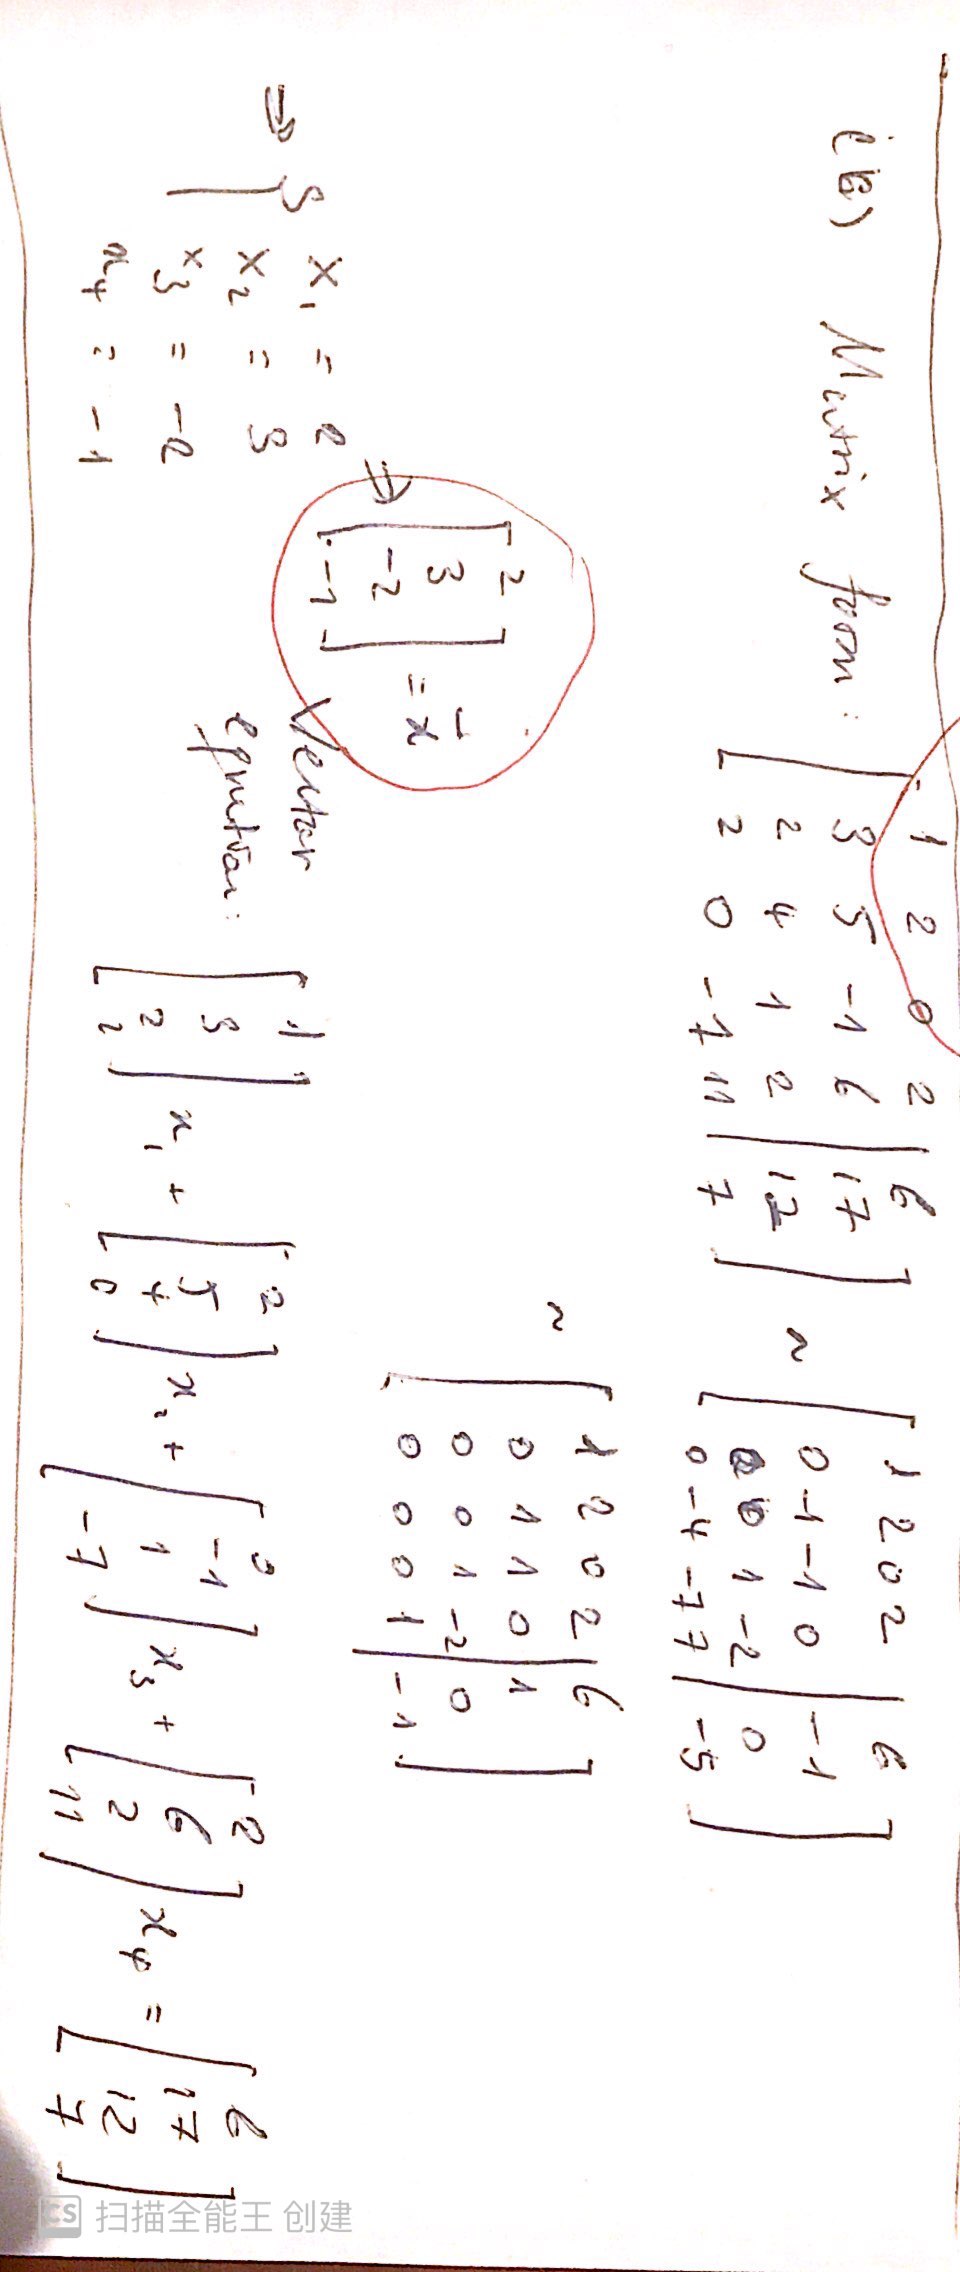 i(b) Matrix form: [ 1 2 0 2 | 6
3 5 -1 6 | 17
2 4 1 2 | 12
2 0 -7 11 | 7 ]
~ [ 1 2 0 2 | 6
0 -1 -1 0 | -1
0 0 1 -2 | 0
0 -4 -7 7 | -5 ]
~ [ 1 2 0 2 | 6
0 1 1 0 | 1
0 0 1 -2 | 0
0 0 0 1 | -1 ]
⇒ { x₁ = 2
x₂ = 3
x₃ = -2
x₄ = -1
⇒ [ 2
3
-2
-1 ] = x̄
Vector
equation: [ 1 3 2 2 ] x₁ + [ 2 5 4 0 ] x₂ + [ 0 -1 1 -7 ] x₃ + [ 2 6 2 11 ] x₄ = [ 6 17 12 7 ]
CS 扫描全能王 创建